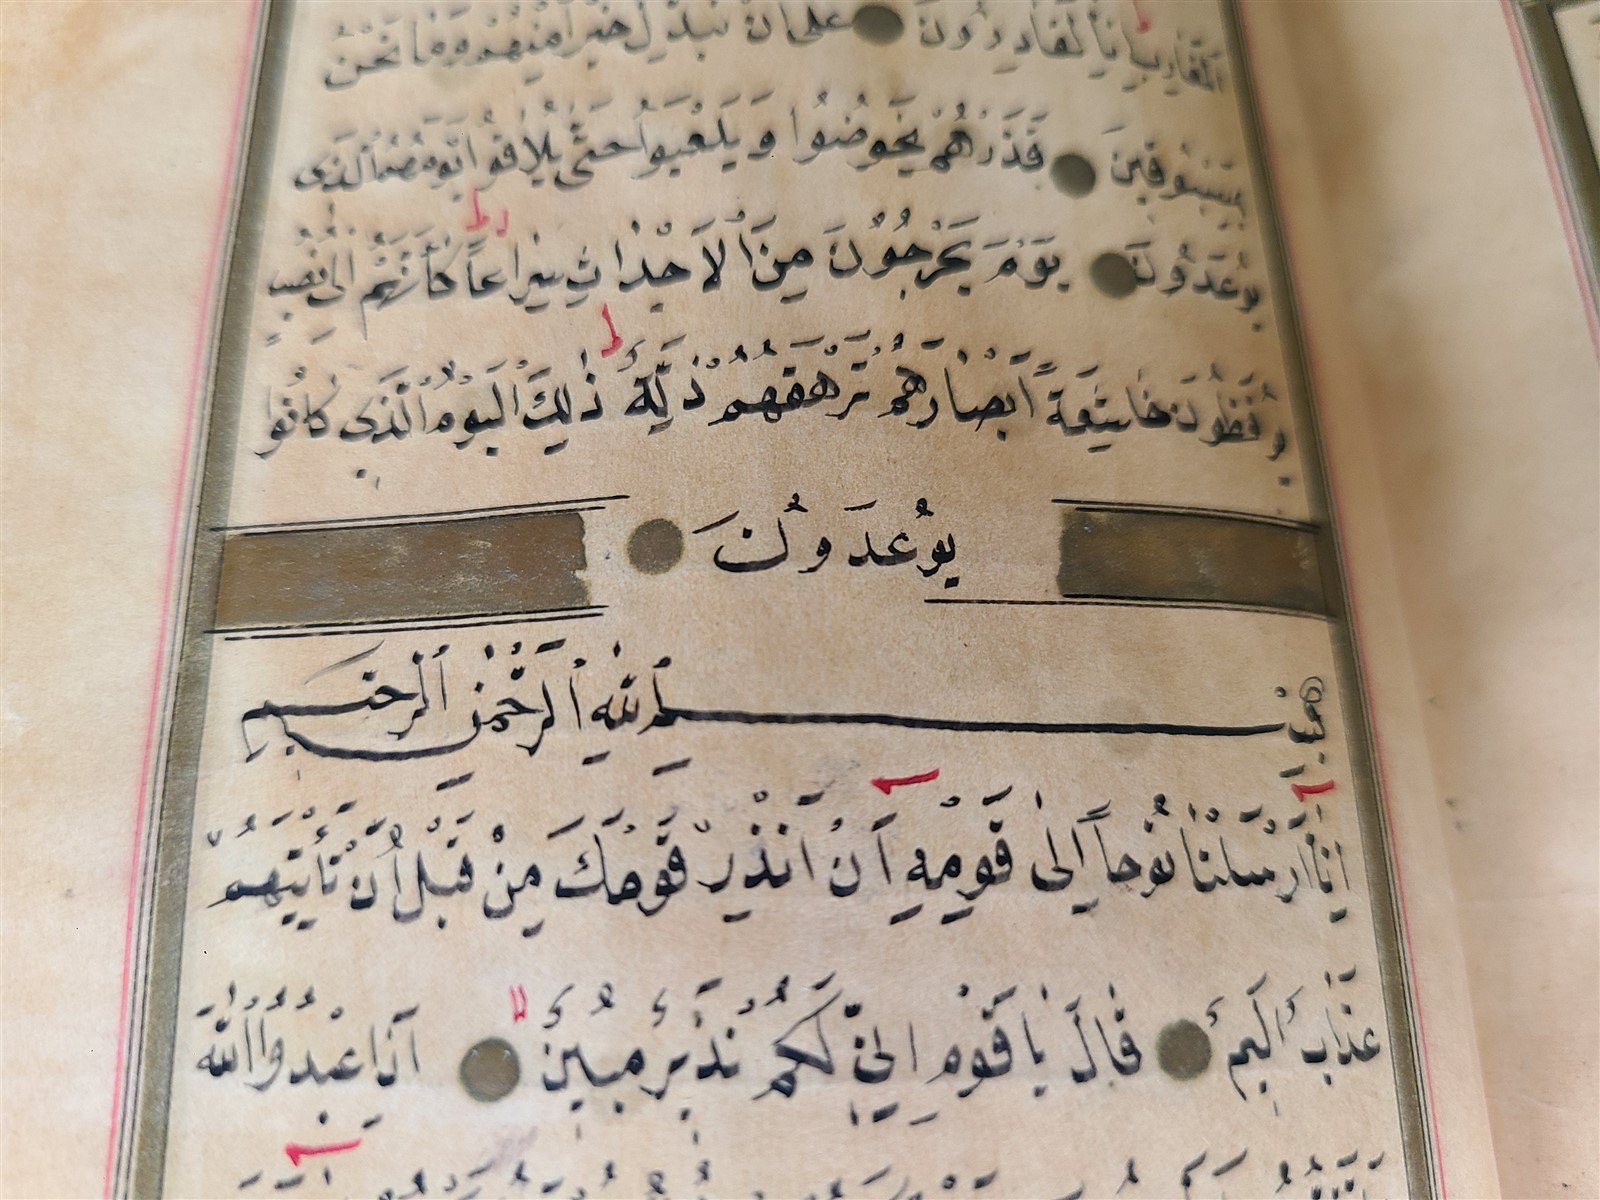 الْمَغَارِبِ اِنَّا لَقَادِرُونَ عَلٰى اَنْ نُبَدِّلَ خَيْرًا مِنْهُمْ وَمَا نَحْنُ
بِمَسْبُوقِينَ فَذَرْهُمْ يَخُوضُوا وَيَلْعَبُوا حَتّٰى يُلَاقُوا يَوْمَهُمُ الَّذِى
يُوعَدُونَ يَوْمَ يَخْرُجُونَ مِنَ الْاَجْدَاثِ سِرَاعاً كَاَنَّهُمْ اِلٰى نُصُبٍ
يُوفِضُونَ خَاشِعَةً اَبْصَارُهُمْ تَرْهَقُهُمْ ذِلَّةٌ ذٰلِكَ الْيَوْمُ الَّذِى كَانُوا
يُوعَدُونَ
بِسْمِ اللّٰهِ الرَّحْمٰنِ الرَّحِيمِ
اِنَّا اَرْسَلْنَا نُوحاً اِلٰى قَوْمِهِ اَنْ اَنْذِرْ قَوْمَكَ مِنْ قَبْلِ اَنْ يَأْتِيَهُمْ
عَذَابٌ اَلِيمٌ قَالَ يَا قَوْمِ اِنِّى لَكُمْ نَذِيرٌ مُبِينٌ اَنِ اعْبُدُوا اللّٰهَ